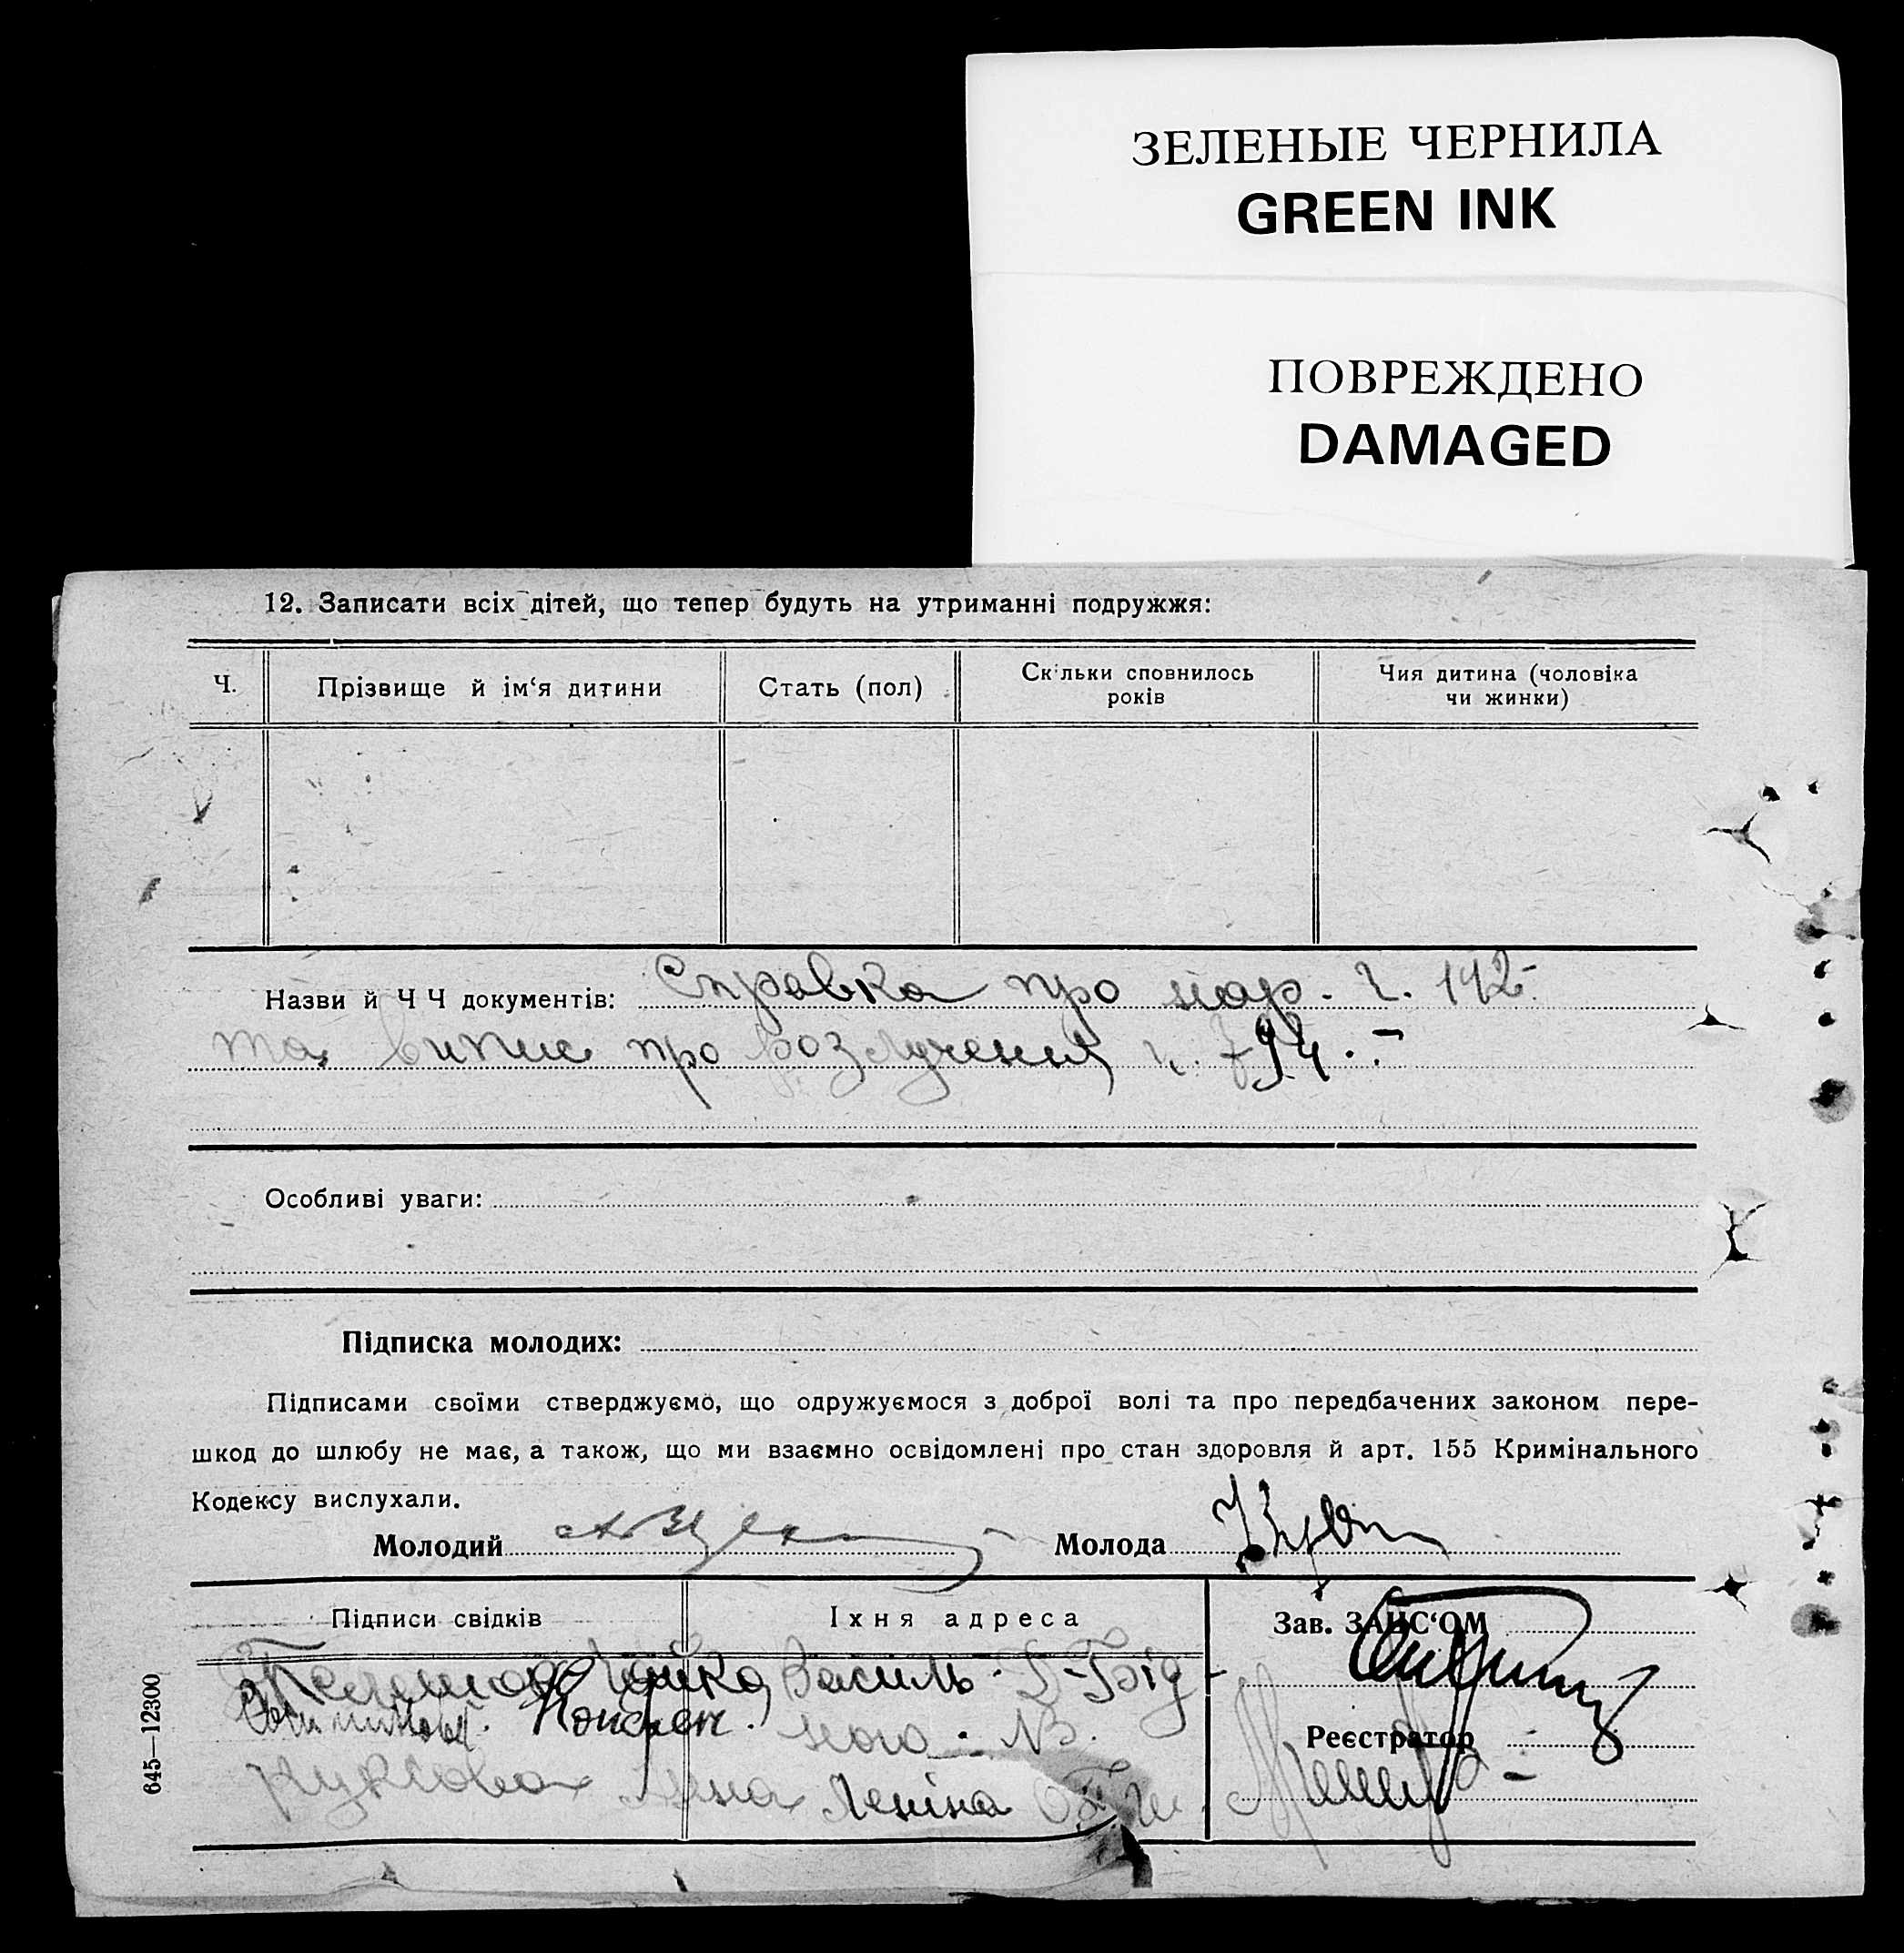 ЗЕЛЕНЫЕ ЧЕРНИЛА
GREEN INK
ПОВРЕЖДЕНО
DAMAGED
12. Записати всіх дітей, що тепер будуть на утриманні подружжя:
Ч.
Прізвище й ім‘я дитини
Стать (пол)
Скільки сповнилось
років
Чия дитина (чоловіка
чи жинки)
Назви й ЧЧ документів: Справка про нар. ч. 142
та випис про розлучення ч. 794.
Особливі уваги:
Підписка молодих:
Підписами своїми стверджуємо, що одружуємося з доброї волі та про передбачених законом пере-
шкод до шлюбу не має, а також, що ми взаємно освідомлені про стан здоровля й арт. 155 Кримінального
Кодексу вислухали.
Молодий
Молода
Підписи свідків
Їхня адреса
Зав. ЗАНС‘ОМ
Чайка Василь
Реєстратор
Леніна
645—12300